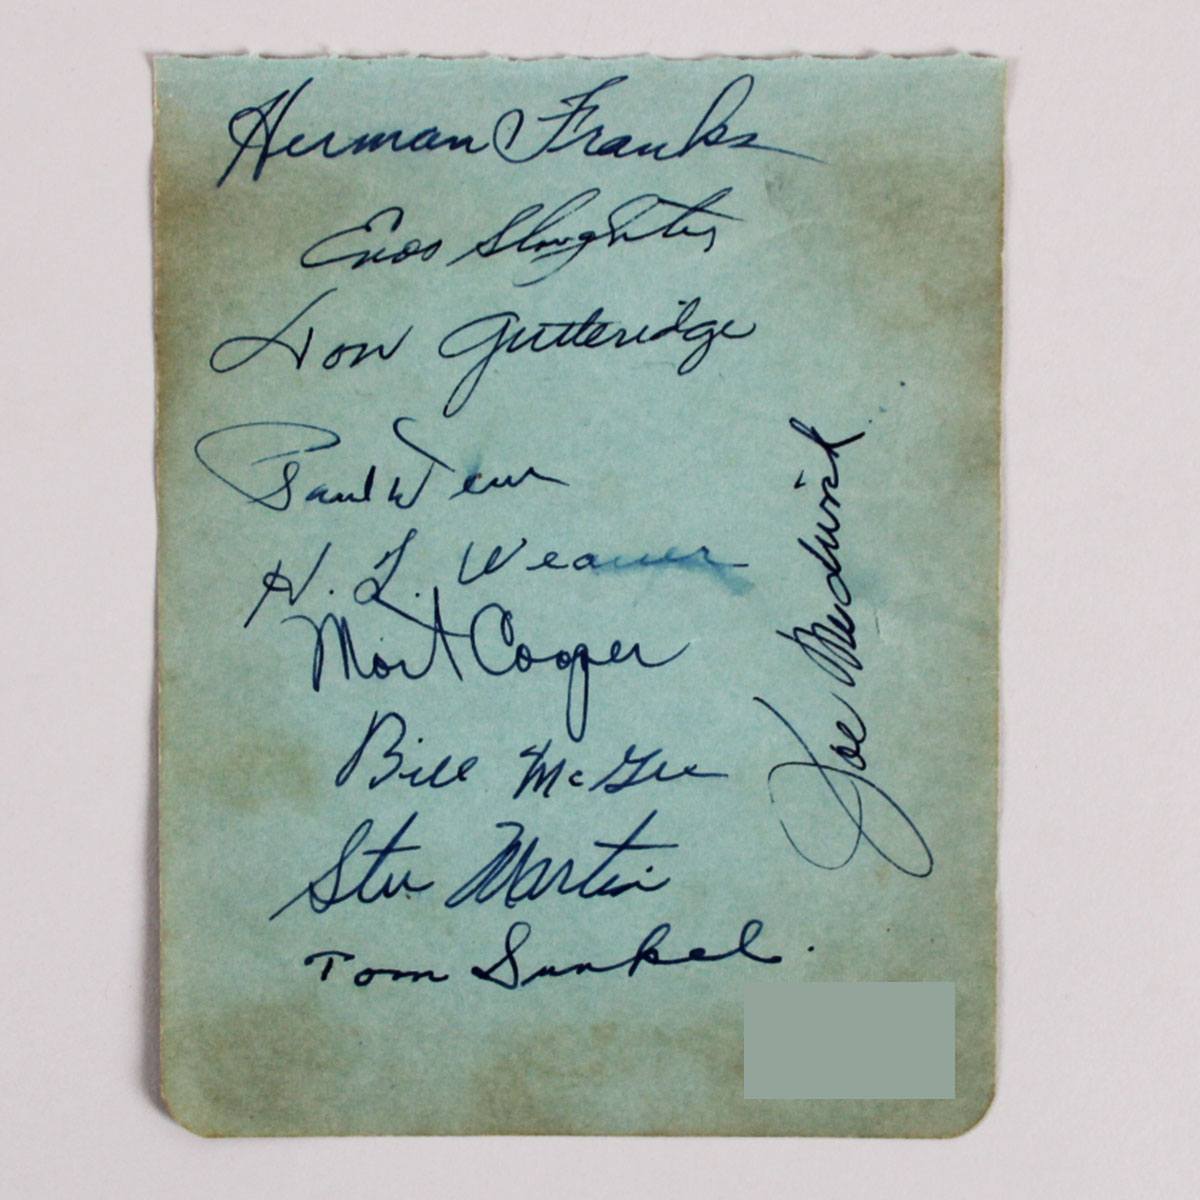 Herman Franks
Enos Slaughter
Don Gutteridge
Paul Dean
H. L. Weaver
Mort Cooper
Bill McGee
Stu Martin
Tom Sunkel.
Joe Medwick